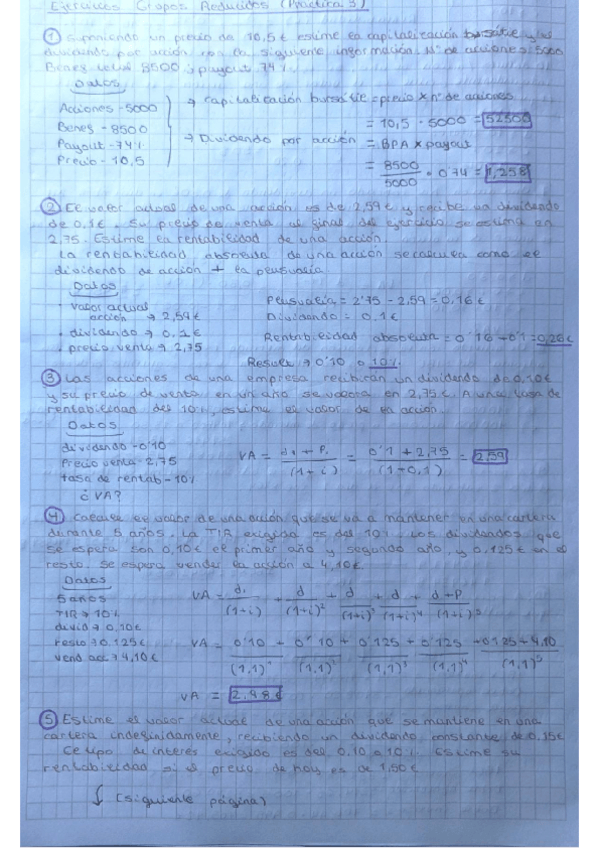 Ejercicios Grupos Reducidos (Práctica 3)
① Suponiendo un precio de 10,5€ estime la capitalización bursátil y los
dividendos por acción con la siguiente información. Nº de acciones: 5000
Benef. 8500; payout 74%.
Datos
Acciones - 5000
Benef - 8500
Payout - 74%
Precio - 10,5
→ Capitalización bursátil = precio × nº de acciones
= 10,5 · 5000 = 52500
→ Dividendo por acción = BPA × payout
= 8500/5000 · 0'74 = 1,258
② El valor actual de una acción es de 2,59€ y recibe un dividendo
de 0,1€. Su precio de venta al final del ejercicio se estima en
2,75. Estime la rentabilidad de una acción.
La rentabilidad absoluta de una acción se calcula como el
dividendo de acción + la plusvalía.
Datos
· valor actual
acción → 2,59€
· dividendo → 0,1€
· precio venta → 2,75
Plusvalía = 2'75 - 2,59 = 0,16€
Dividendo = 0,1€
Rentabilidad absoluta = 0'16 + 0'1 = 0,26€
Result → 0'10 o 10%
③ Las acciones de una empresa recibirán un dividendo de 0,10€
y su precio de venta en un año se valora en 2,75€. A una tasa de
rentabilidad del 10%, estime el valor de la acción.
Datos
dividendo - 0'10
Precio venta - 2,75
tasa de rentab - 10%
¿VA?
VA = d₁ + P₁ / (1+i) = 0'1 + 2,75 / (1+0,1) = 2,59
④ Calcule el valor de una acción que se va a mantener en una cartera
durante 5 años. La TIR exigida es del 10%. Los dividendos que
se espera son 0,10€ el primer año y segundo año, y 0,125€ en el
resto. Se espera vender la acción a 4,10€.
Datos
5 años
TIR → 10%
divid → 0,10€
resto → 0.125€
vend acc → 4,10€
VA = d₁/(1+i) + d/(1+i)² + d/(1+i)³ + d/(1+i)⁴ + d+P/(1+i)⁵
VA = 0'10/(1,1)¹ + 0'10/(1,1)² + 0'125/(1,1)³ + 0'125/(1,1)⁴ + 0'125+4,10/(1,1)⁵
VA = 2,98€
⑤ Estime el valor actual de una acción que se mantiene en una
cartera indefinidamente, recibiendo un dividendo constante de 0,15€
El tipo de interés exigido es del 0,10 o 10%. Estime su
rentabilidad si el precio de hoy es de 1,50€
(siguiente página)